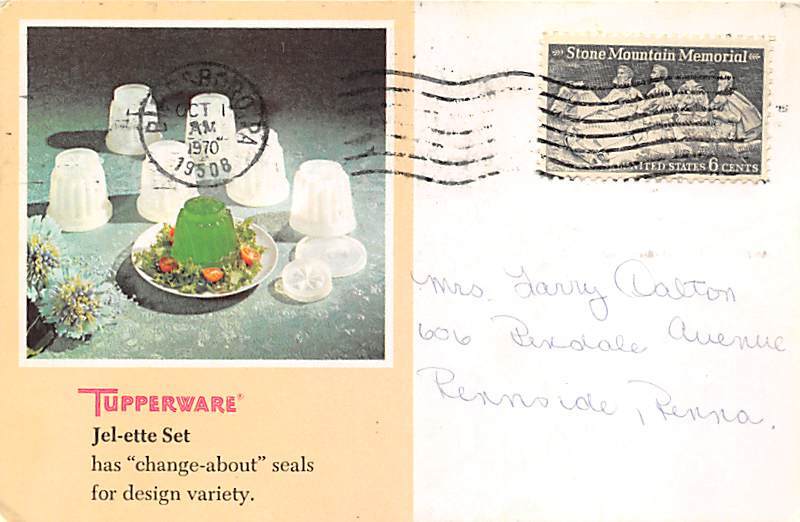 BIRDSBORO, PA
OCT 1
AM
1970
19508
Stone Mountain Memorial
UNITED STATES 6 CENTS
Mrs. Larry Dalton
606 Rexdale Avenue
Pennside, Penna.
TUPPERWARE®
Jel-ette Set
has “change-about” seals
for design variety.